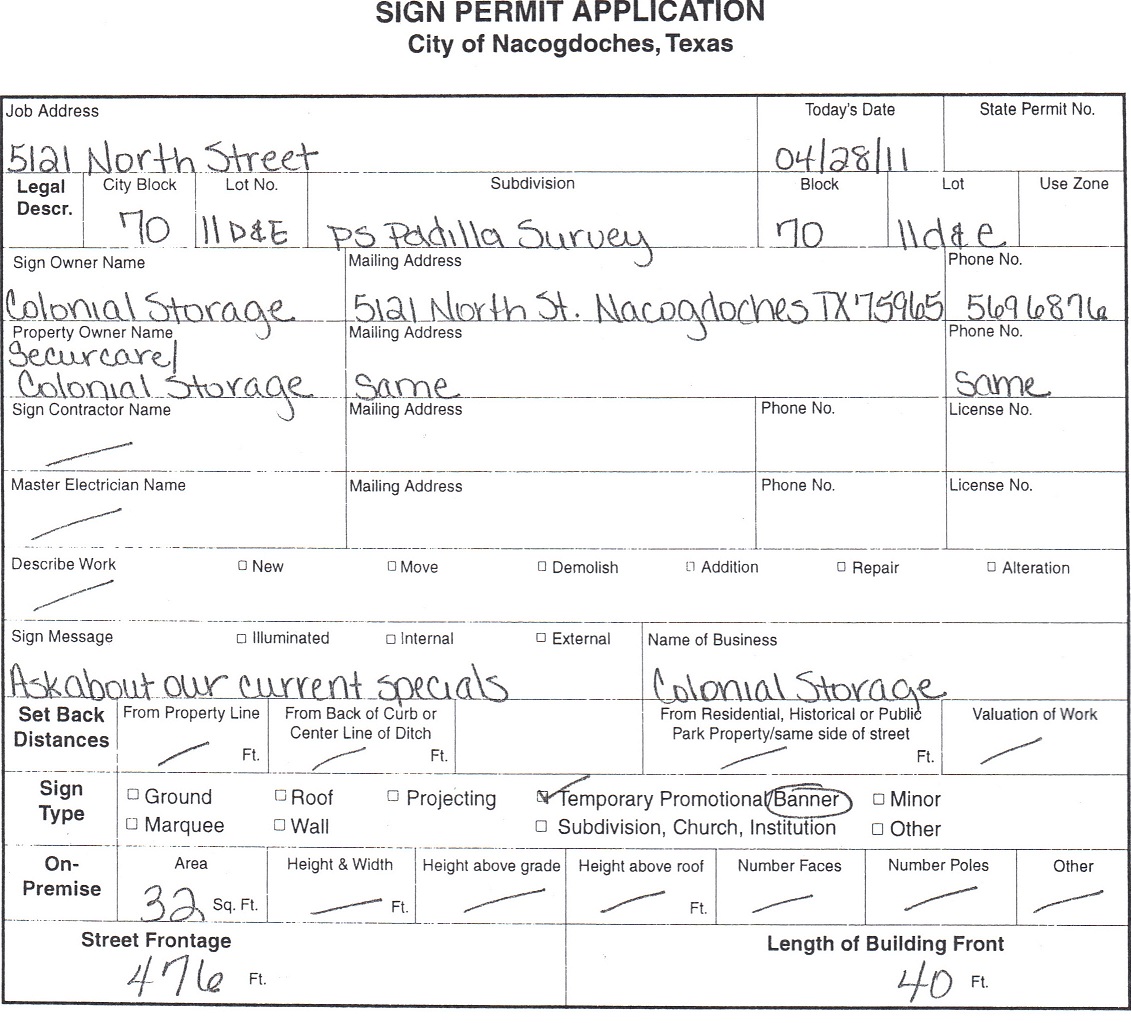 SIGN PERMIT APPLICATION
City of Nacogdoches, Texas
Job Address Today's Date State Permit No.
5121 North Street 04/28/11
Legal Descr. City Block Lot No. Subdivision Block Lot Use Zone
70 11D&E PS Padilla Survey 70 11d&e
Sign Owner Name Mailing Address Phone No.
Colonial Storage 5121 North St. Nacogdoches TX 75965 5696876
Property Owner Name Mailing Address Phone No.
Securcare/
Colonial Storage Same Same
Sign Contractor Name Mailing Address Phone No. License No.
Master Electrician Name Mailing Address Phone No. License No.
Describe Work New Move Demolish Addition Repair Alteration
Sign Message Illuminated Internal External Name of Business
Ask about our current specials Colonial Storage
Set Back Distances From Property Line From Back of Curb or Center Line of Ditch From Residential, Historical or Public Park Property/same side of street Valuation of Work
Ft. Ft. Ft.
Sign Type Ground Roof Projecting Temporary Promotional/Banner Minor
Marquee Wall Subdivision, Church, Institution Other
On-Premise Area Height & Width Height above grade Height above roof Number Faces Number Poles Other
32 Sq. Ft. Ft. Ft.
Street Frontage Length of Building Front
476 Ft. 40 Ft.